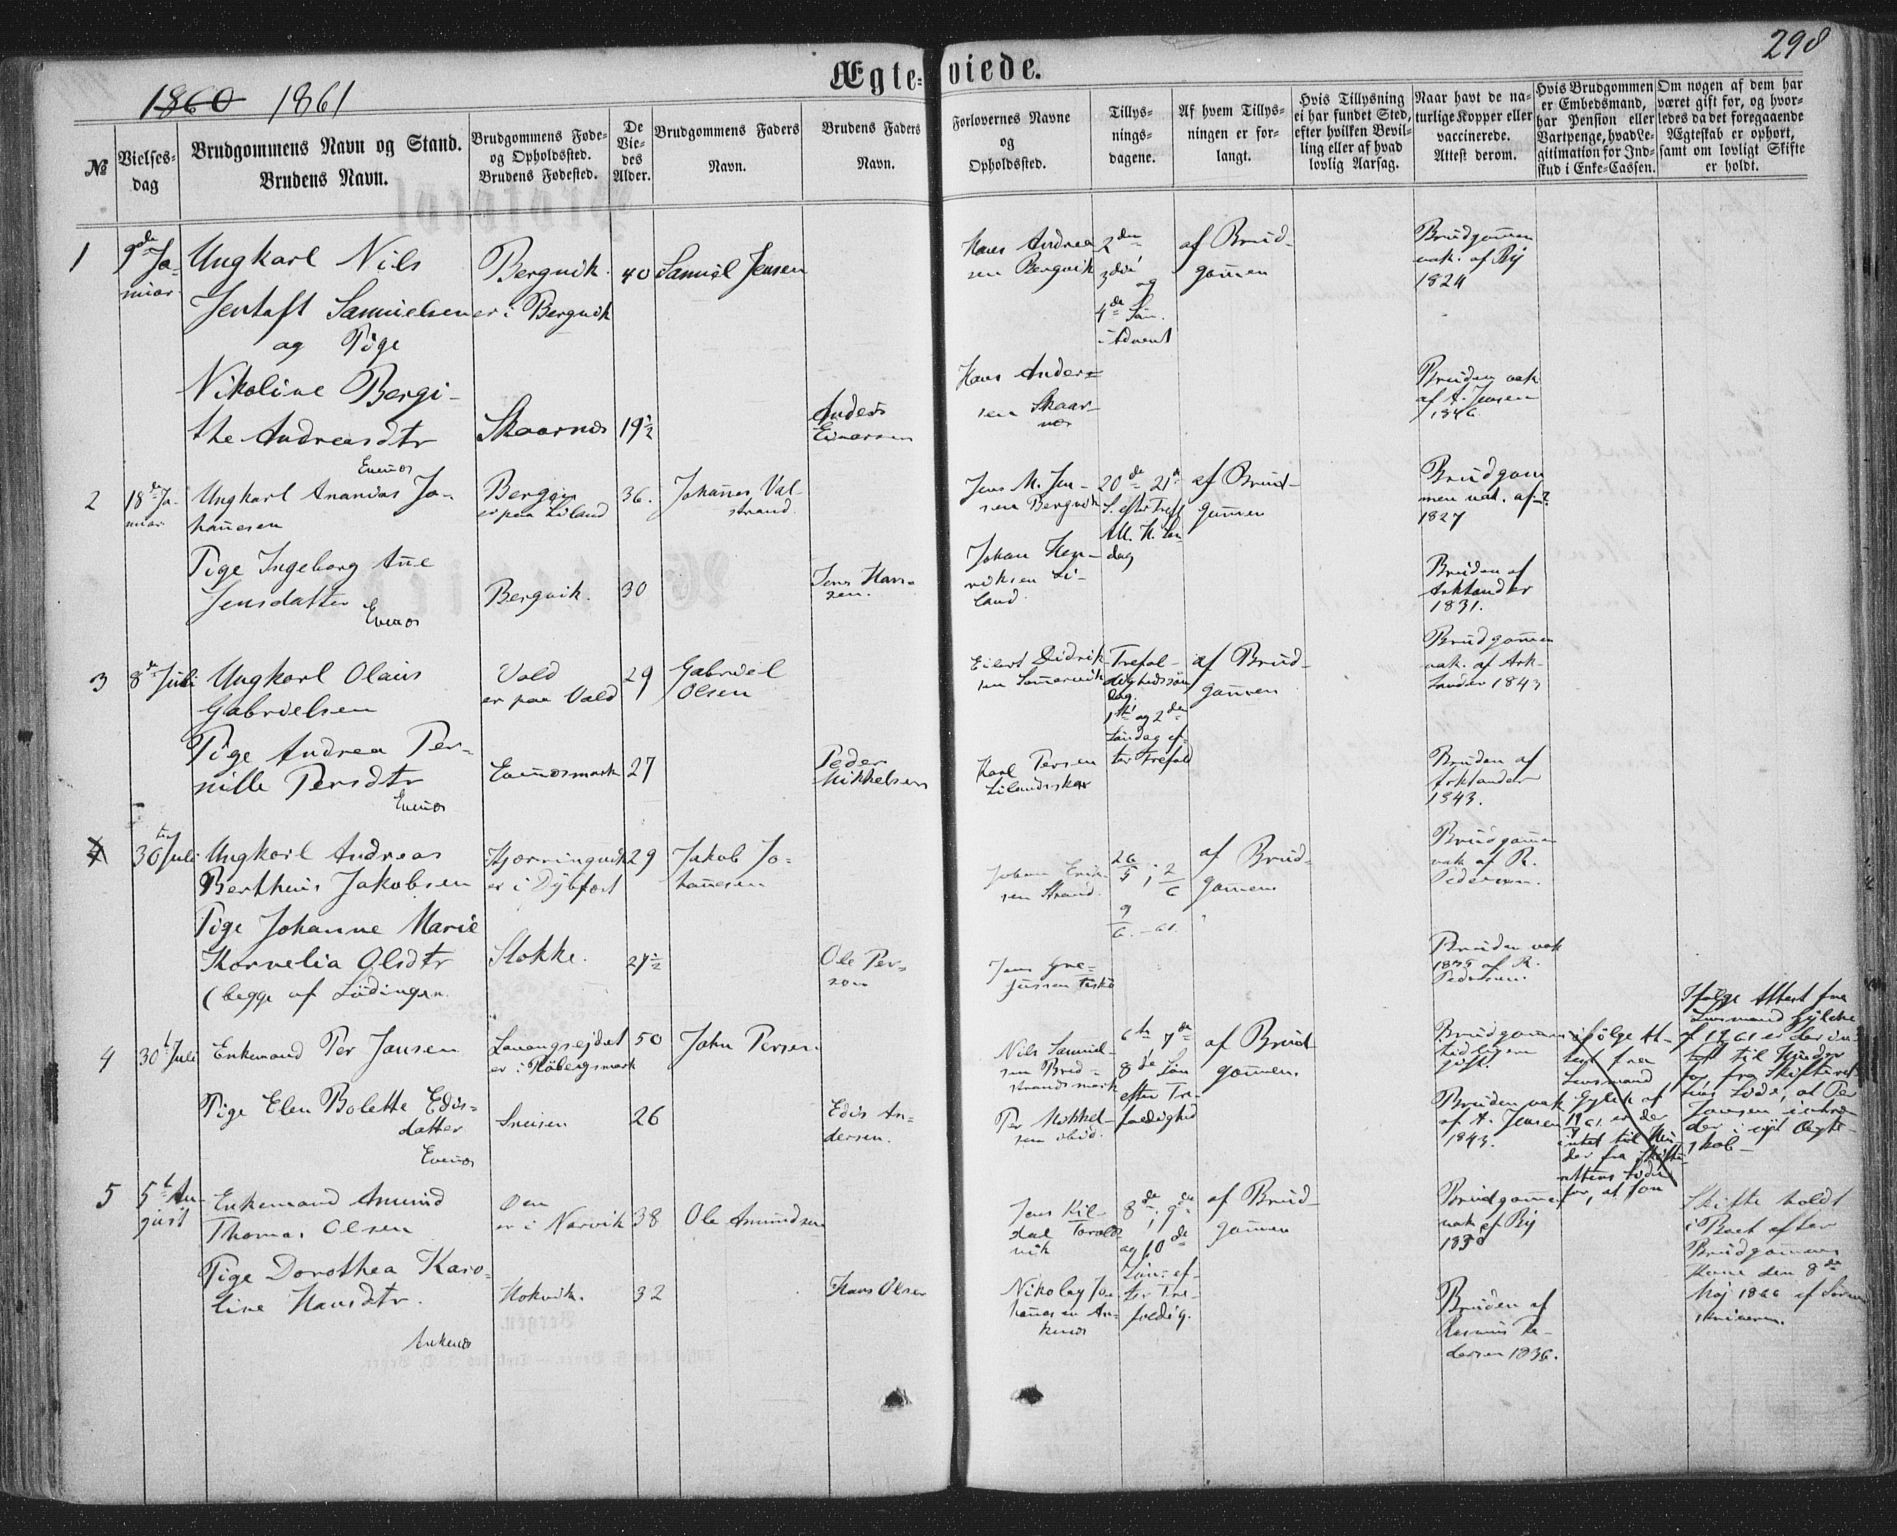 298
Ægteviede.
1860 1861
№
Vielses-
dag
Brudgommens Navn og Stand.
Brudens Navn.
Brudgommens Føde-
og Opholdssted.
Brudens Fødested.
De
Vie-
des
Alder.
Brudgommens Faders
Navn.
Brudens Faders
Navn.
Forlovernes Navne
og
Opholdssted.
Tillys-
nings-
dagene.
Af hvem Tillys-
ningen er for-
langt.
Hvis Tillysning
ei har fundet Sted,
efter hvilken Bevil-
ling eller af hvad
lovlig Aarsag.
Naar havt de na-
turlige Kopper eller
vaccinerede.
Attest derom.
Hvis Brudgommen
er Embedsmand,
har Pension eller
Vartpenge, hvad Le-
gitimation for Ind-
skud i Enke-Cassen.
Om nogen af dem har
været gift for, og hvor-
ledes da det foregaaende
Ægteskab er ophørt,
samt om lovligt Skifte
er holdt.
1
9de Ja-
nuar
Ungkarl Nils
Jentoft Samuelsen
og Pige
Nikoline Bergi-
the Andreasdtr
Evenes
Bergvik.
er i Bergvik
Skaarnes
40
19½
Samuel Jensen
Anders
Einarsen
Hans Andrea
sen Bergvik
Hans Ander=
sen Skaar-
nes
2den
3die
og
4de Søn.
i Advent
af Brud-
gommen
Brudgommen
vak. af Rÿ
1824
Bruden vak
af A. Jensen
1846.
2
18de Ja-
nuar
Ungkarl Ananias Jo-
hannesen
Pige Ingeborg Anne
Jensdatter
Evenes
er paa Liland
Bergvik.
36.
30
Johannes Val-
strand.
Jens Han-
sen.
Jens M. Jen-
sen Bergvik
Johan Hen-
riksen Li-
land.
20de 21de
S. efter Tref
dag
af Brud-
gommen
Brudgom
men vak. af ?
1827
Bruden af
Arktander
1831.
3
8de Juli
Ungkarl Olaus
Gabrielsen
Pige Andrea Per-
nille Persdtr
Evenes
Vold
er paa Vold
Evenesmark
29
27
Gabriel
Olsen
Peder
Mikkelsen
Eilert Didrik-
sen Sommervik
Karl Persen
Lilandsskar
Trefol-
dighedssøn
dag.
1ste og 2den
Søndag ef-
ter Trefold
af Brud-
gommen
Brudgommen
vak. af Ark-
tander 1843
Bruden af
Arktander
1843.
4
30te Juli
Ungkarl Andreas
Berthius Jakobsen
Pige Johanne Marie
Kornelia Olsdtr
(begge af Lødingen.
Kjørringvik
er i Dybfost
Stokke.
29
27½
Jakob Jo-
hannesen
Ole Per-
sen
Johan Erik
sen Strand.
Jens Gre-
gussen Fiskø
26/5 ; 2/6
9/6. - 61.
af Brud-
gommen
Brudgommen
vak af R.
Pedersen.
Bruden vak
1835 af R.
Pedersen.
4
30te Juli
Enkemand Per Jansen
Pige Elen Bolette Edis-
datter
Evenes
Lavangsejdet
er i Røbergsmark
Sneisen
50
26
John Persen.
Edis An-
dersen.
Nils Samuel-
sen Bred-
strandsmark
Per Mikkel-
sen ibid.
6te 7de
8de Søn
efter Tre-
foldighed
af Brud-
gommen.
Brudgommen
tidligere
gift.
Bruden vak
af A. Jensen
1843.
ifølge At-
test fra
Lensmand
Gylck af
17/7 61 er der
intet til Hin-
der fra Skifte-
rettens Side
for, at Jon
Ifølge Attest fra
Lensmand Gylche
af 17/7 61 er der in-
tet til Hinder
for, fra Skifteret-
tens Side, at Per
Jansen indtræ-
der i nyt Ægte-
skab-
5
5te Au-
gust
Enkemand Amund
Thomas Olsen
Pige Dorothea Karo-
line Hansdtr.
Ankenes
Øen
er i Narvik
Kokvik.
38
32
Ole Amundsen
Hans Olsen
Jens Kil-
dal Torvolds
vik
Nikolay Jo-
hannesen An-
kenes
8de, 9de
og 10de
Søn. ef-
ter Tre-
foldig.
af Brud-
gommen
Brudgommen
vak af Rÿ
1830
Bruden af
Rasmus Pe-
dersen 1836.
Skifte holdt
i Boet efter
Brudgommens
Kone den 8de
Maj 1860 af Soren-
skriveren.